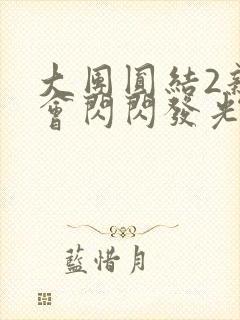 大團圓結2新
會閃閃發光
藍惜月